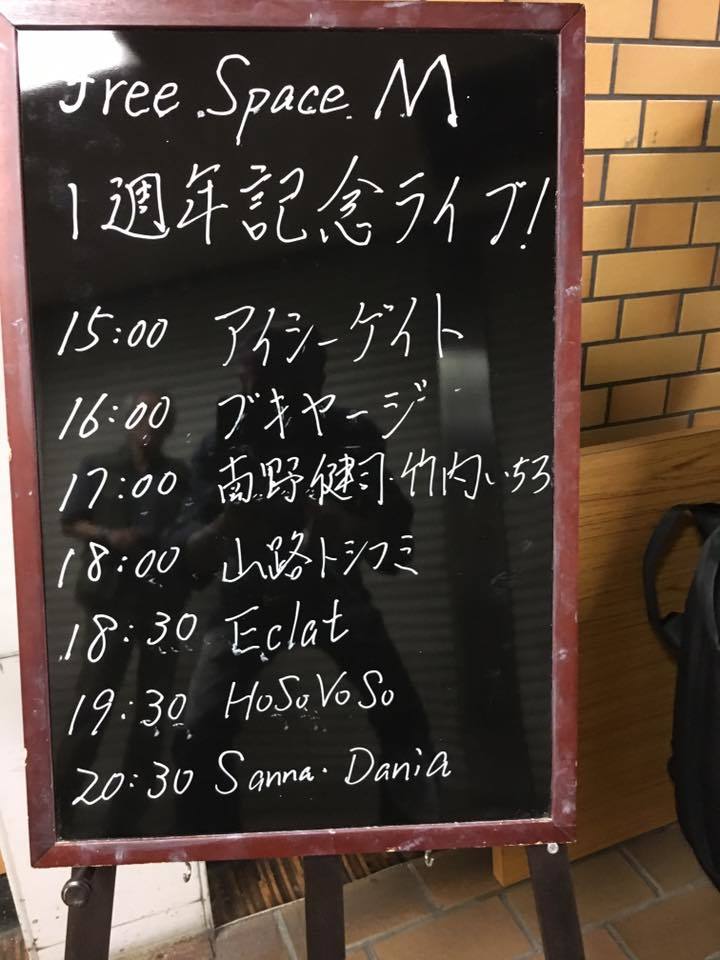 Free Space M
1週年記念ライブ!
15:00 アイシーゲイト
16:00 ブキャージ
17:00 南野健司・竹内いちろ
18:00 山路トシフミ
18:30 Eclat
19:30 HoSoVoSo
20:30 Sanna・Dania